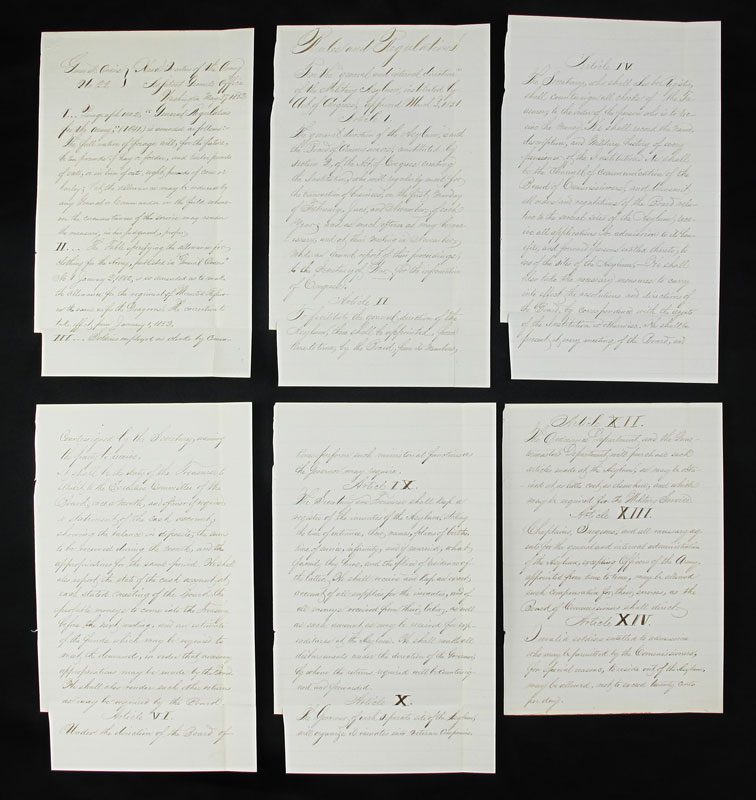 General Orders Head Quarters of the Army
No. 22 Adjutant General's Office
Washington
I... Paragraph 1002, "General Regulations
for the Army," (1841) is amended as follows:
The full ration of forage will, for the future,
be ten pounds of hay or fodder, and twelve pounds
of oats, or in lieu of oats, eight pounds of corn or
barley; but the allowance may be reduced by
any General or Commander in the field whenever
the circumstances of the service may render
the measure, in his judgment, proper.
II... The Table prescribing the allowance of
clothing for the Army, published in "General Orders"
No. 1, January 2, 1852, is so amended as to make
the allowance for the regiment of Mounted Riflemen
the same as for the Dragoons. The correction to
take effect from January 1, 1853.
III... employed as clerks by
Rules and Regulations
For the general and internal direction
of the Military Asylum, created by
Act of Congress, approved March 3, 1851.
Article I.
The general direction of the Asylum, is with
the Board of Commissioners, constituted by
section 2, of the Act of Congress creating
the Institution, who will regularly meet for
the transaction of business on the first Monday
of February, June, and November, of each
year, and as much oftener as may be
necessary, and at their meeting in November,
make an annual report of their proceedings
to the Secretary of War, for the information
of Congress.
Article II
To facilitate the general direction of the
Asylum, there shall be appointed, from
time to time, by the Board, from its members,
Article IV.
The Secretary, who shall also be Register,
shall countersign all checks of the
Treasurer, to the order of the person who is to
receive the money. He shall record the name,
description, and military history of every
pensioner of the Institution. He shall
be the channel of communication of the
Board of Commissioners, and transmit
all orders and regulations of the Board
relative to the several sites of the Asylum; receive
all applications for admission to its benefits,
and forward
to the of the Asylum. He shall
also take the necessary measures to carry
into effect the resolutions and directions of
the Board, by correspondence with the agents
of the Institution or otherwise. He shall be
present at every meeting of the Board, and
Countersigned by the Secretary, naming
the party to receive.
It shall be the duty of the Treasurer to
submit to the Executive Committee of the
Board, once a month, or oftener if required,
a statement of the cash account,
showing the balance in deposite, the sums
to be received during the month, and the
appropriations for the same period. He shall
also report the state of the cash account at
each stated meeting of the Board, the
probable moneys to come into the Treasury
before the next meeting, and an estimate
of the funds which may be required to
meet the demands, in order that necessary
appropriations may be made by the Board.
He shall also render such other returns
as may be required by the Board.
Article VI.
Under the direction of the Board of
time perform such ministerial functions as
the Governor may require.
Article IX.
The Secretary and Treasurer shall keep a
register of the inmates of the Asylum, stating
the time of entrance, their names, place of birth,
time of service, infirmity, and if married, what
family, the time, and the place of residence of
the latter. He shall receive and keep an exact
account of all supplies for the inmates, and of
all moneys received from their labor, as well
as such moneys as may be received for
expenditures at the Asylum. He shall make all
disbursements under the direction of the Governor,
by whom the returns required will be
countersigned and forwarded.
Article X.
The Governor of each separate site of the Asylum,
will organize its inmates into Veteran Companies
Article XII.
The Ordnance Department, and the
Quartermaster's Department, will purchase such
articles made at the Asylum, as may be
obtained at as little cost as elsewhere, and which
may be required for the Military Service.
Article XIII.
Chaplains, Surgeons, and all necessary
agents for the general and internal administration
of the Asylum, excepting Officers of the Army,
appointed from time to time, may be allowed
such compensation for their services, as the
Board of Commissioners shall direct.
Article XIV.
Invalid soldiers entitled to admission
who may be permitted by the Commissioners,
for special reasons, to reside out of the Asylum,
may be allowed, not to exceed twenty cents
per day.